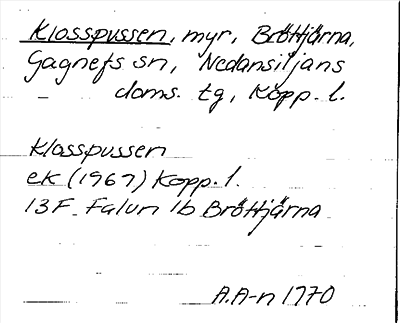 Klosspussen, myr, Bröttjärna,
Gagnefs sn, Nedansiljans
doms. tg, Kopp. l.
Klosspussen
ek (1967) Kopp. l.
13F Falun 1b Bröttjärna
A.A-n 1970